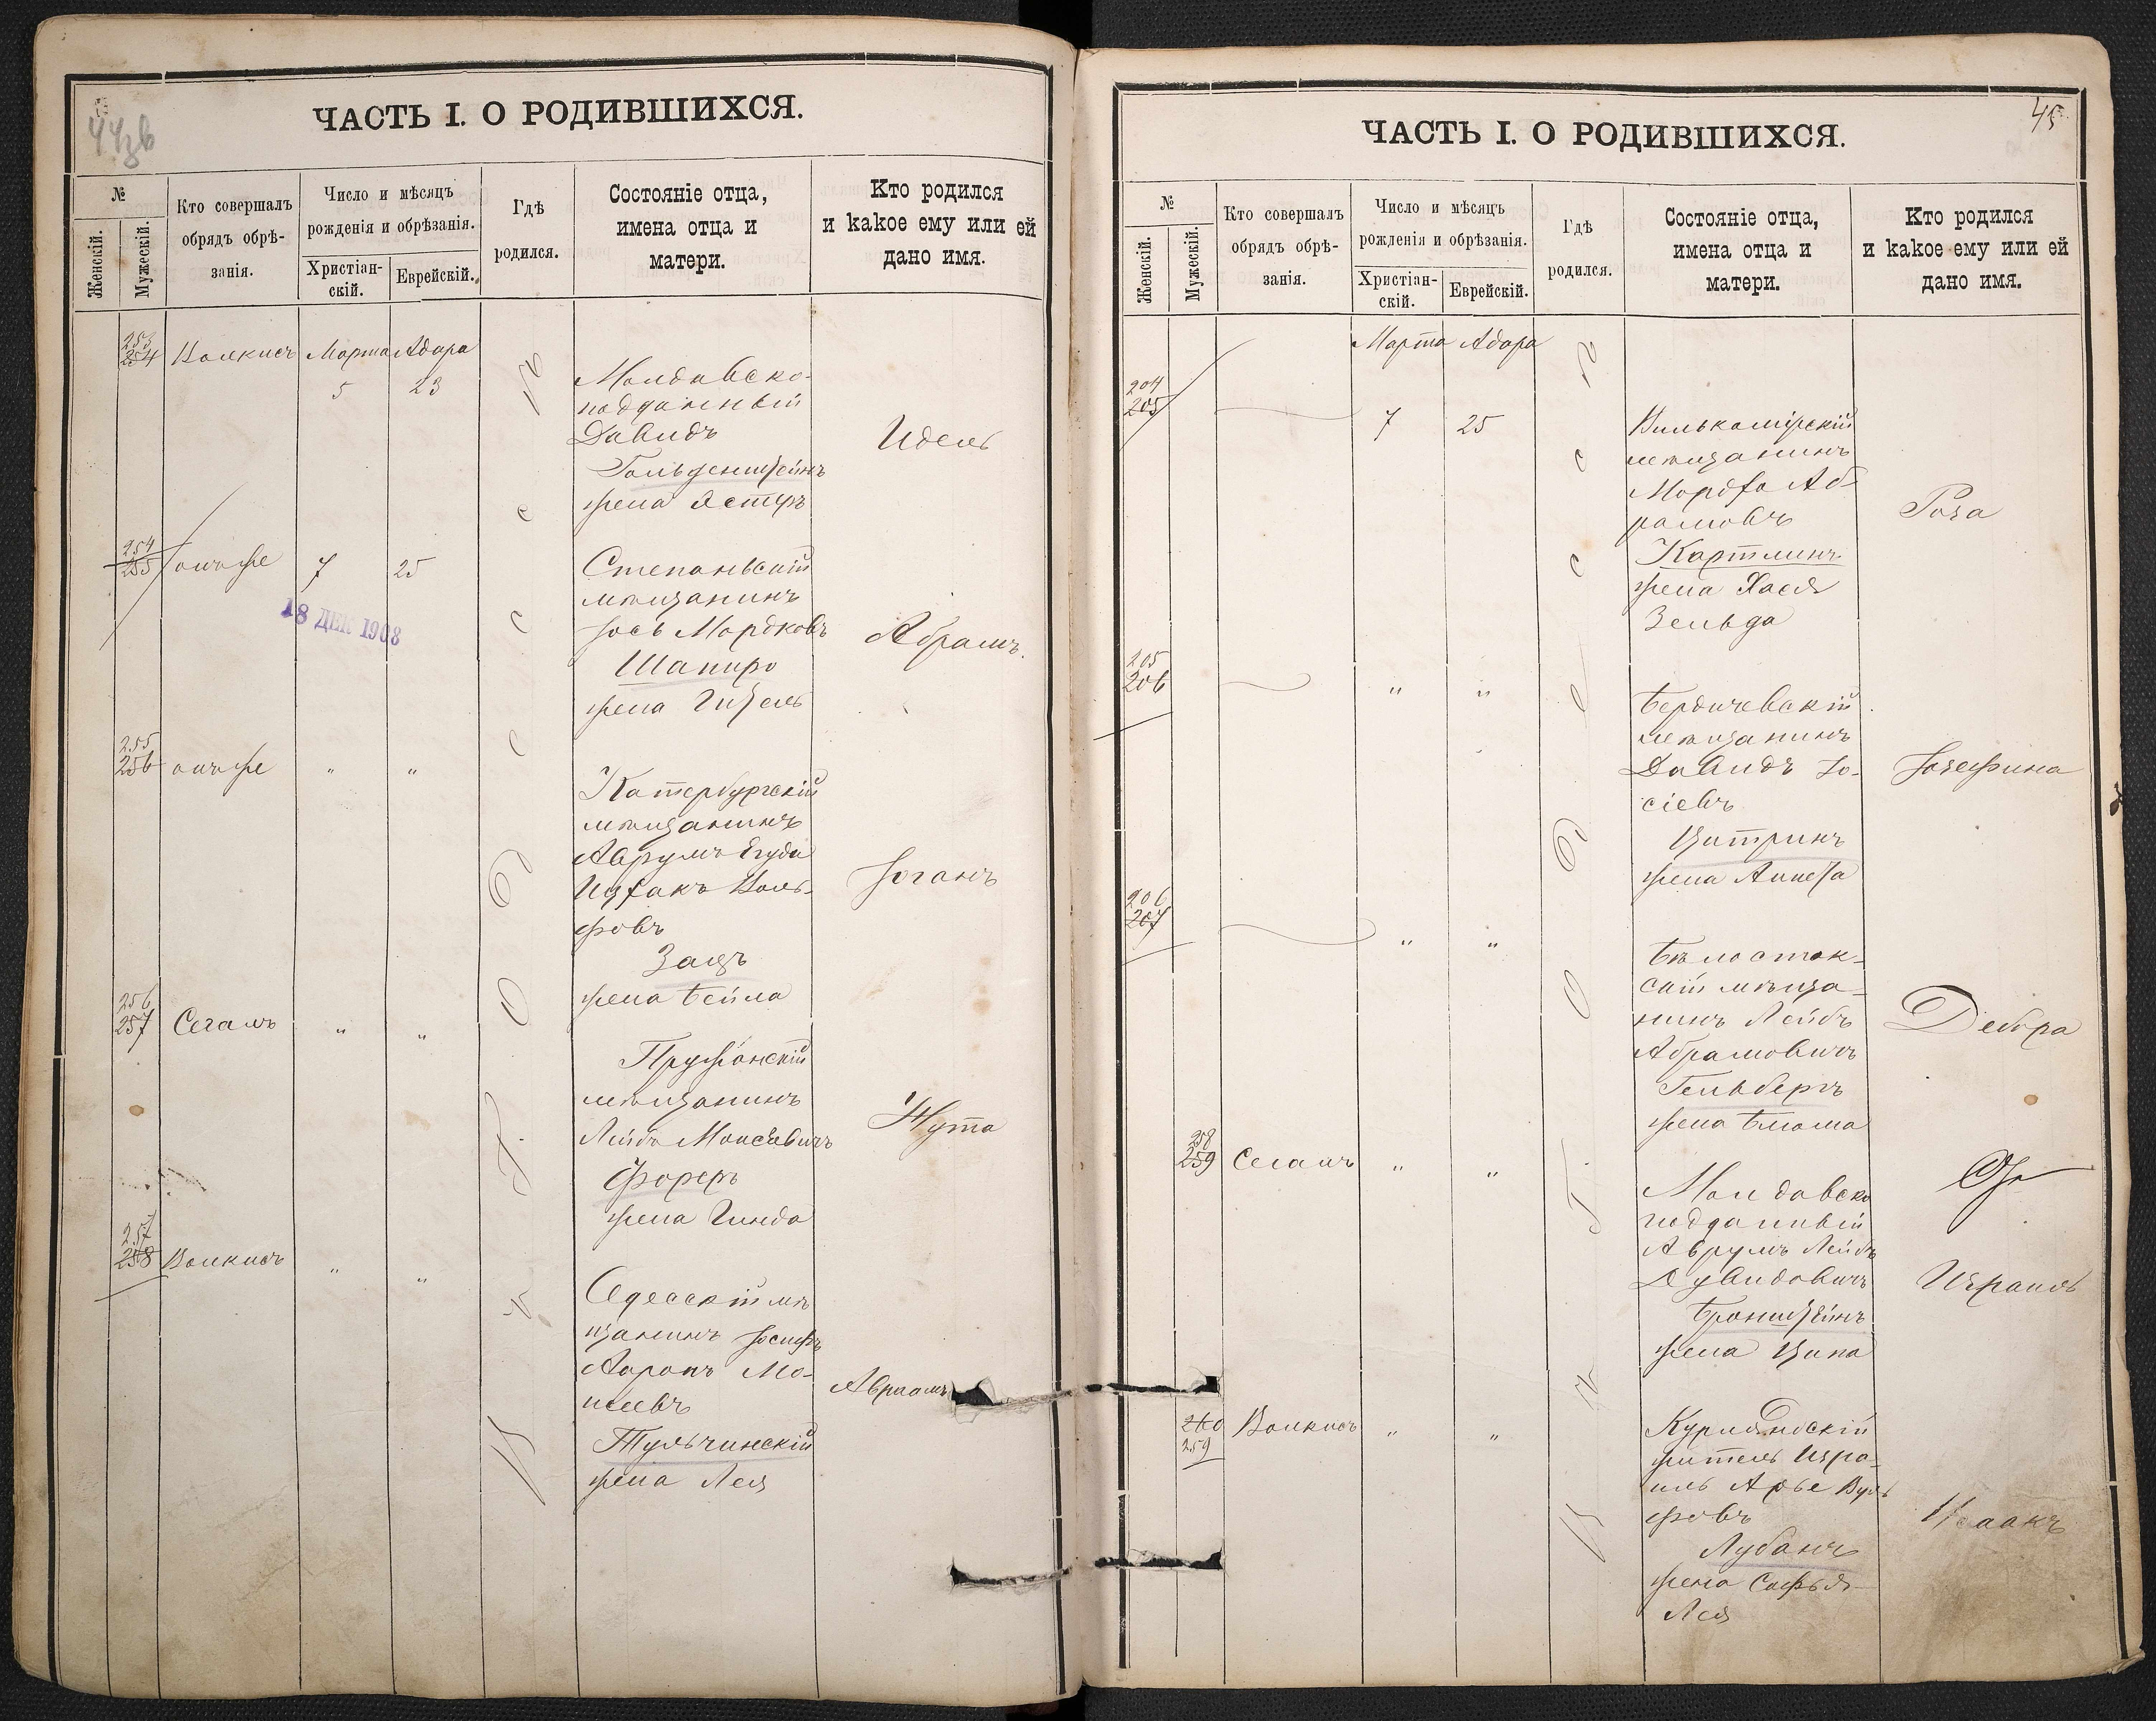 44зв
ЧАСТЬ I. О РОДИВШИХСЯ.
№
Женскій.
Мужескій.
Кто совершалъ
обрядъ обрѣ-
занія.
Число и мѣсяцъ
рожденія и обрѣзанія.
Христіан-
скій.
Еврейскій.
Гдѣ
родился.
Состояніе отца,
имена отца и
матери.
Кто родился
и какое ему или ей
дано имя.
Въ г. Одессѣ
253
254
Волкисъ
Марта Адара
5 23
Молдавско-
подданный
Давидъ
Гольденштейнъ
жена Эстеръ
Идель
254
255
онъ же
7 25
18 ДЕК 1908
Степаньскій
мѣщанинъ
Іось Мордковъ
Шапиро
жена Гитель
Абрамъ.
255
256
онъ же
" "
Катербургскій
мѣщанинъ
Аврумъ Егуда
Ицхакъ Воль-
фовъ
Зацъ
жена Бейла
Іоганъ
256
257
Сегалъ
" "
Пружанскій
мѣщанинъ
Лейбъ Моисѣевичъ
Фореръ
жена Гинда
Нута
257
258
Волкисъ
" "
Одесскій мѣ
щанинъ Іосифъ
Ааронъ Мо-
шевъ
Тульчинскій
жена Лея
Авраамъ
45
ЧАСТЬ I. О РОДИВШИХСЯ.
№
Женскій.
Мужескій.
Кто совершалъ
обрядъ обрѣ-
занія.
Число и мѣсяцъ
рожденія и обрѣзанія.
Христіан-
скій.
Еврейскій.
Гдѣ
родился.
Состояніе отца,
имена отца и
матери.
Кто родился
и какое ему или ей
дано имя.
Въ г. Одессѣ
Марта Адара
204
205
7 25
Вилькомірскій
мѣщанинъ
Мордхо Аб-
рамовъ
Картлинъ
жена Хася
Зельда
Роза
205
206
" "
Бердичевскій
мѣщанинъ
Давидъ Іо-
сіевъ
Цитринъ
жена Аннета
Іозефина
206
207
" "
Бѣлосток-
скій мѣща-
нинъ Лейбъ
Абрамовичъ
Гельбергъ
жена Блюма
Дебора
258
259
Сегалъ
" "
Молдавско
подданный
Аврумъ Лейбъ
Дувидовичъ
Бронштейнъ
жена Ципа
Израиль
260
259
Волкисъ
" "
Курляндскій
житель Изра-
иль Арье Вуль
фовъ
Лубанъ
жена Софья-
Лея
Исаакъ